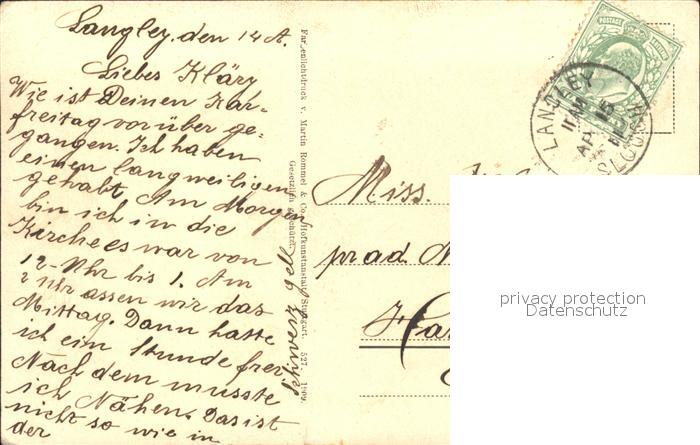 Langley, den 14 A.
Liebes Kläry
Wie ist Deinen Kar-
freitag vorüber ge-
gangen. Ich haben
einen langweiligen
gehabt. Am Morgen
bin ich in die
Kirche es war von
12-Uhr bis 1. Am
2 Uhr assen wir das
Mittag. Dann hatte
ich ein Stunde frei
Nach dem musste
ich Nähen. Das ist
nicht so wie in
der
Schweiz gell
Farbenlichtdruck v. Martin Rommel & Co., Hofkunstanstalt, Stuttgart. 527. 1909.
Gesetzlich geschützt.
POSTAGE
LANGLEY
11 AM
AP 15
11
SLOUGH
Miss.
prad.
privacy protection
Datenschutz